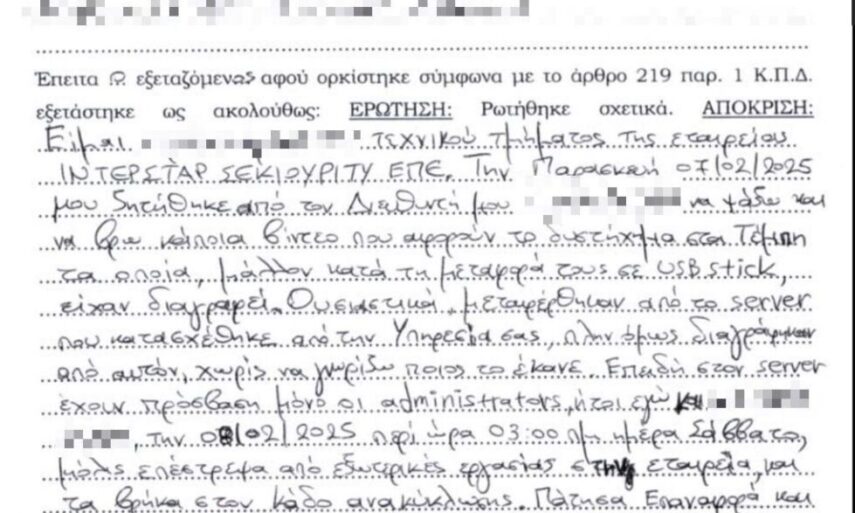 Έπειτα ο εξεταζόμενος αφού ορκίστηκε σύμφωνα με το άρθρο 219 παρ. 1 Κ.Π.Δ.
εξετάστηκε ως ακολούθως: ΕΡΩΤΗΣΗ: Ρωτήθηκε σχετικά. ΑΠΟΚΡΙΣΗ:
Είμαι τεχνικού τμήματος της εταιρείας
ΙΝΤΕΡΣΤΑΡ ΣΕΚΙΟΥΡΙΤΥ ΕΠΕ. Την Παρασκευή 07/02/2025
μου ζητήθηκε από τον Διευθυντή μου να ψάξω και
να βρω κάποια βίντεο που αφορούν το δυστήχημα στα Τέμπη
τα οποία, μάλλον κατά τη μεταφορά τους σε USB stick,
είχαν διαγραφεί. Ουσιαστικά, μεταφέρθηκαν από το server
που κατασχέθηκε από την Υπηρεσία σας, πλην όμως διαγράφηκαν
από αυτόν, χωρίς να γνωρίζω ποιος το έκανε. Επειδή στον server
έχουν πρόσβαση μόνο οι administrators, ήτοι εγώ και
, την 08/02/2025 περί ώρα 03:00 πμ, ημέρα Σάββατο,
μόλις επέστρεψα από εξωτερικές εργασίας στην εταιρεία, και
τα βρήκα στον κάδο ανακύκλωσης. Πάτησα Επαναφορά και